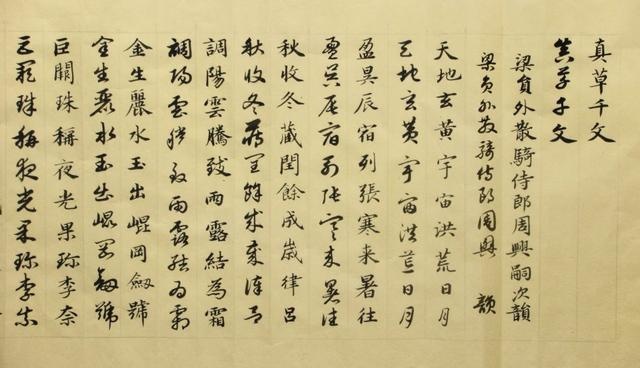 真草千文
真草千文
梁員外散騎侍郎周興嗣次韻
梁員外散騎侍郎周興 韻
天地玄黃宇宙洪荒日月
天地玄黃宇宙洪荒日月
盈昃辰宿列張寒来暑往
盈昃辰宿列張寒来暑往
秋收冬藏閏餘成歲律呂
秋收冬藏閏餘成歲律呂
調陽雲騰致雨露結為霜
調陽雲騰致雨露結為霜
金生麗水玉出崐岡劔號
金生麗水玉出崐岡劔號
巨闕珠稱夜光果珍李奈
巨闕珠稱夜光果珍李奈